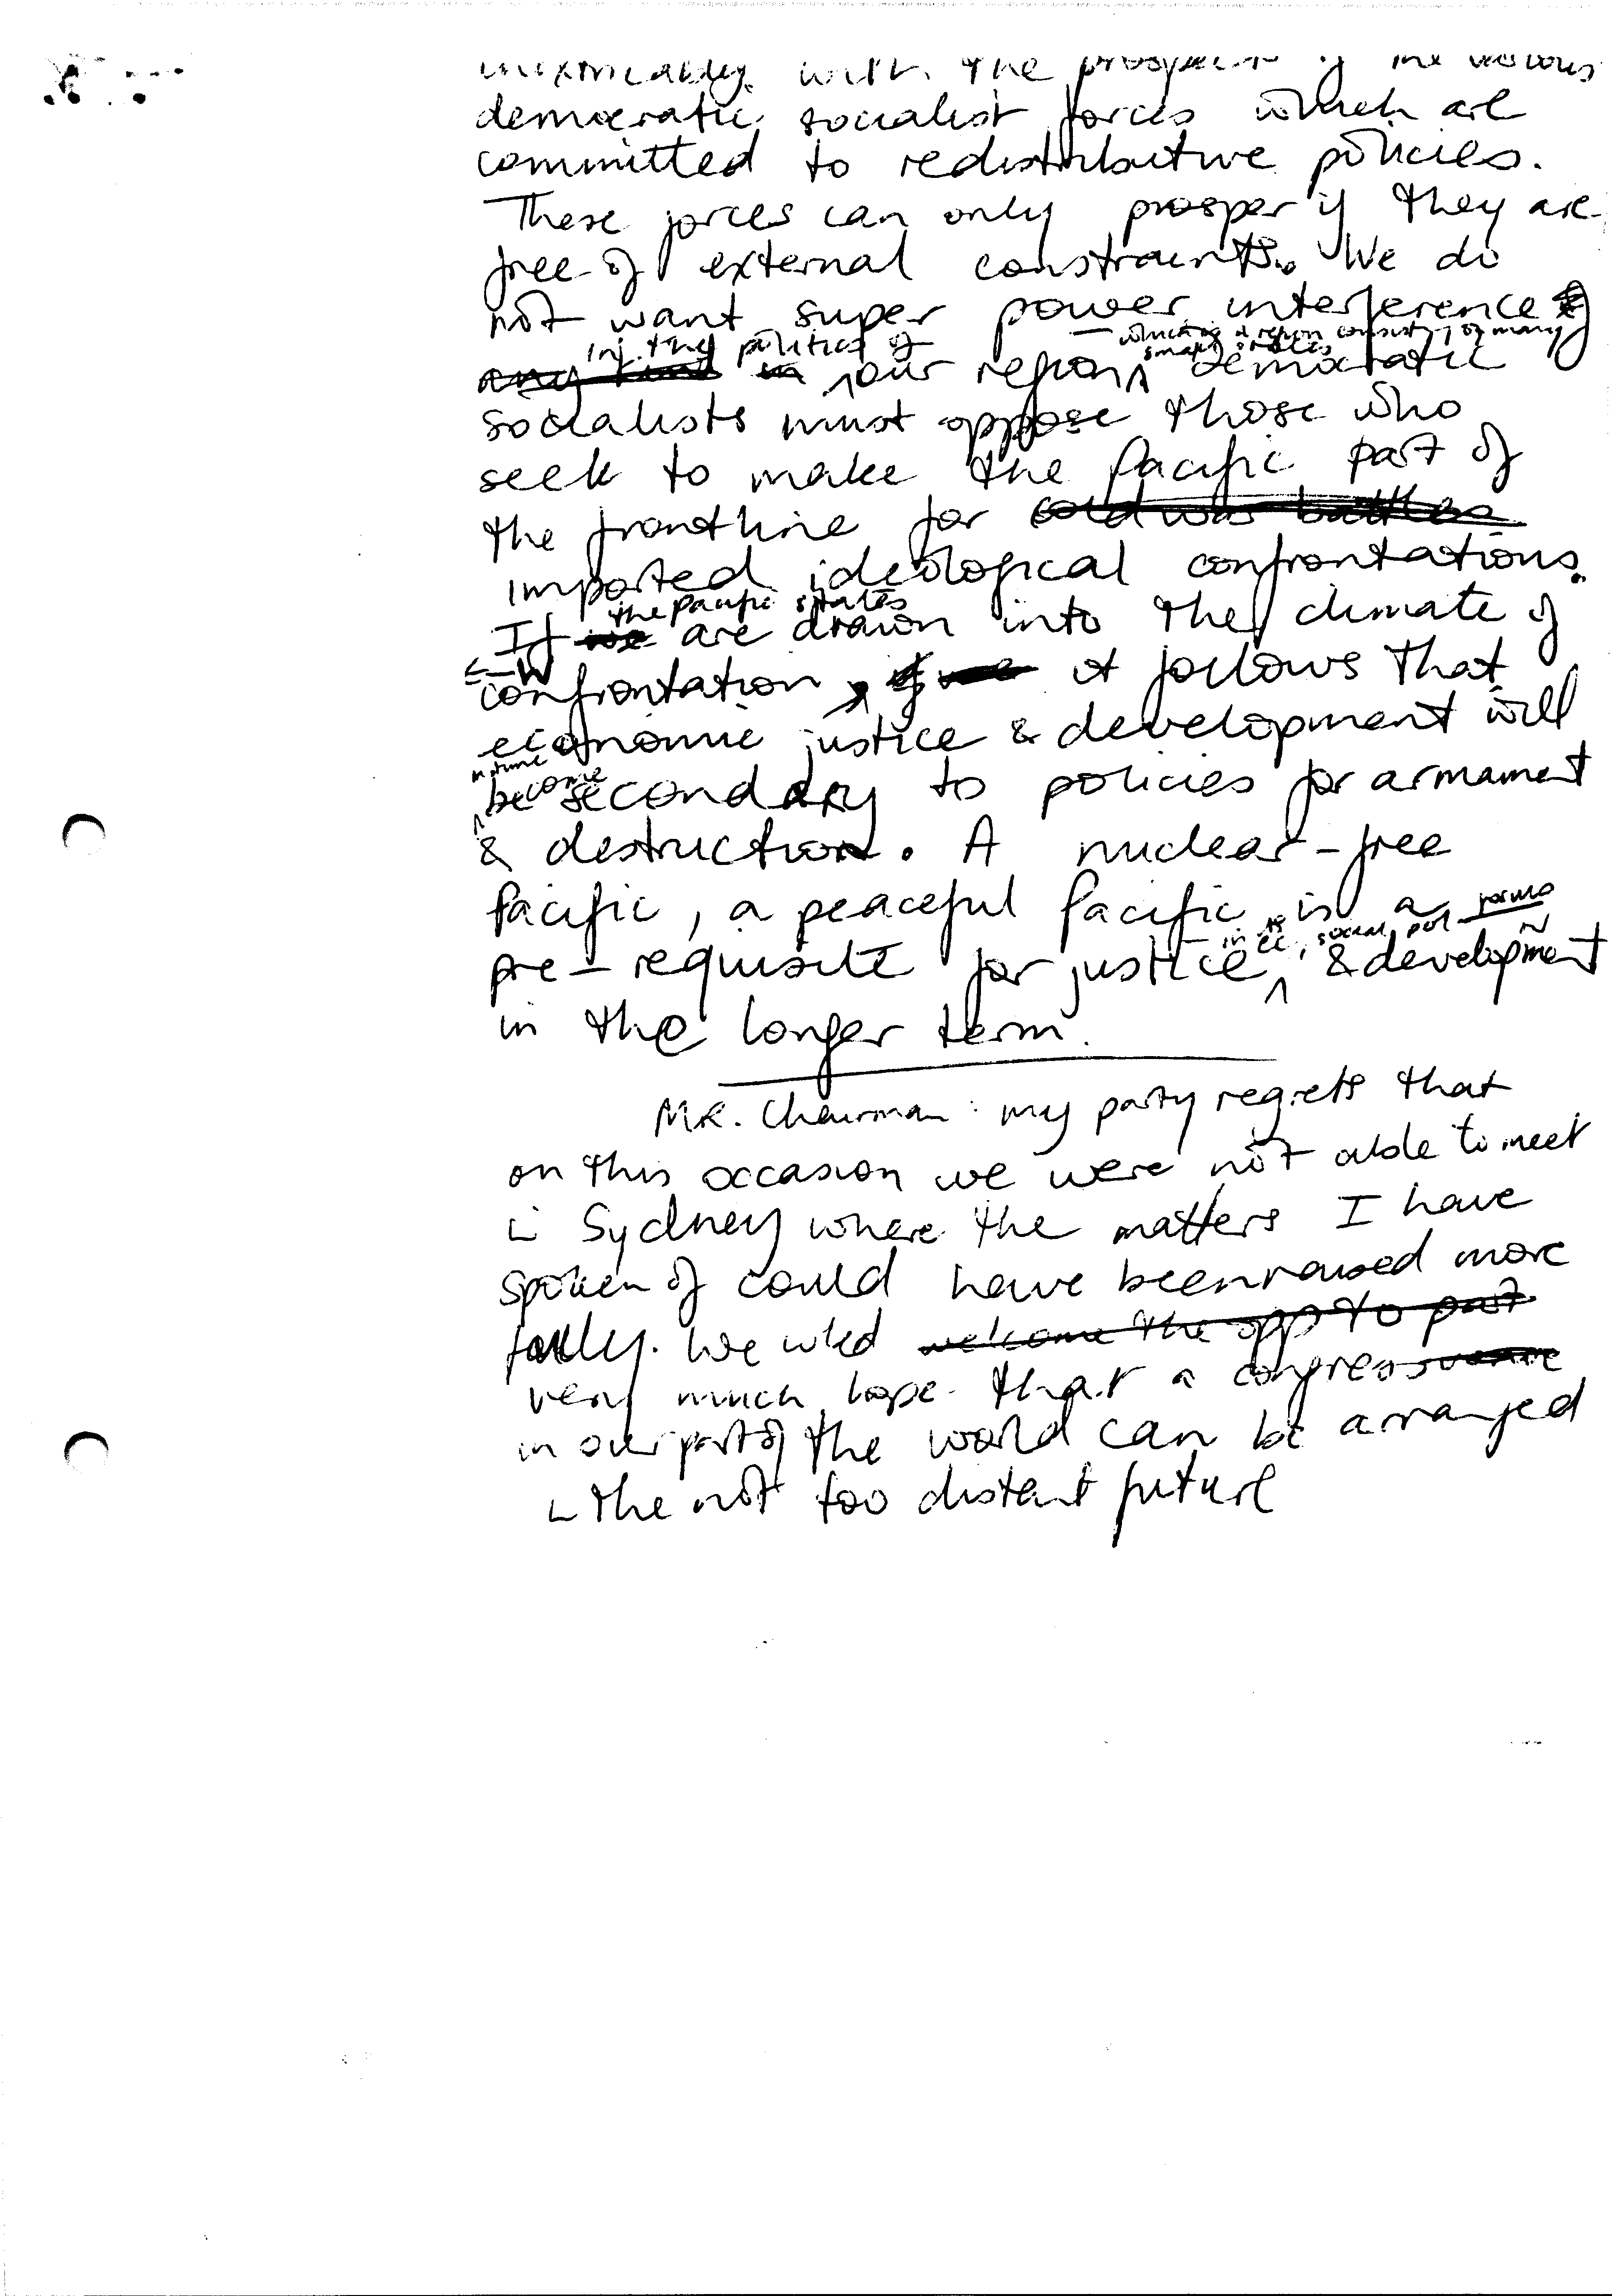 inextricably with the prospects of the various
democratic socialist forces which are
committed to redistributive policies.
These forces can only prosper if they are
free of external constraints. We do
not want super power interference of
in the politics of — which is a region consisting of many
small states
any kind in our region democratic
socialists must oppose those who
seek to make the Pacific part of
the frontline for cold war battles
imported ideological confrontations.
the Pacific states
If we are drawn into the climate of
confrontation, it follows that
economic justice & development will
in time
become secondary to policies for armament
& destruction. A nuclear-free
Pacific, a peaceful Pacific is a
in its ec, social, pol forms
pre-requisite for justice & development
in the longer term.
MR. Chairman: my party regrets that
on this occasion we were not able to meet
in Sydney where the matters I have
spoken of could have been raised more
fully. We wld welcome the opp to part
very much hope that a congress
in our part of the world can be arranged
in the not too distant future